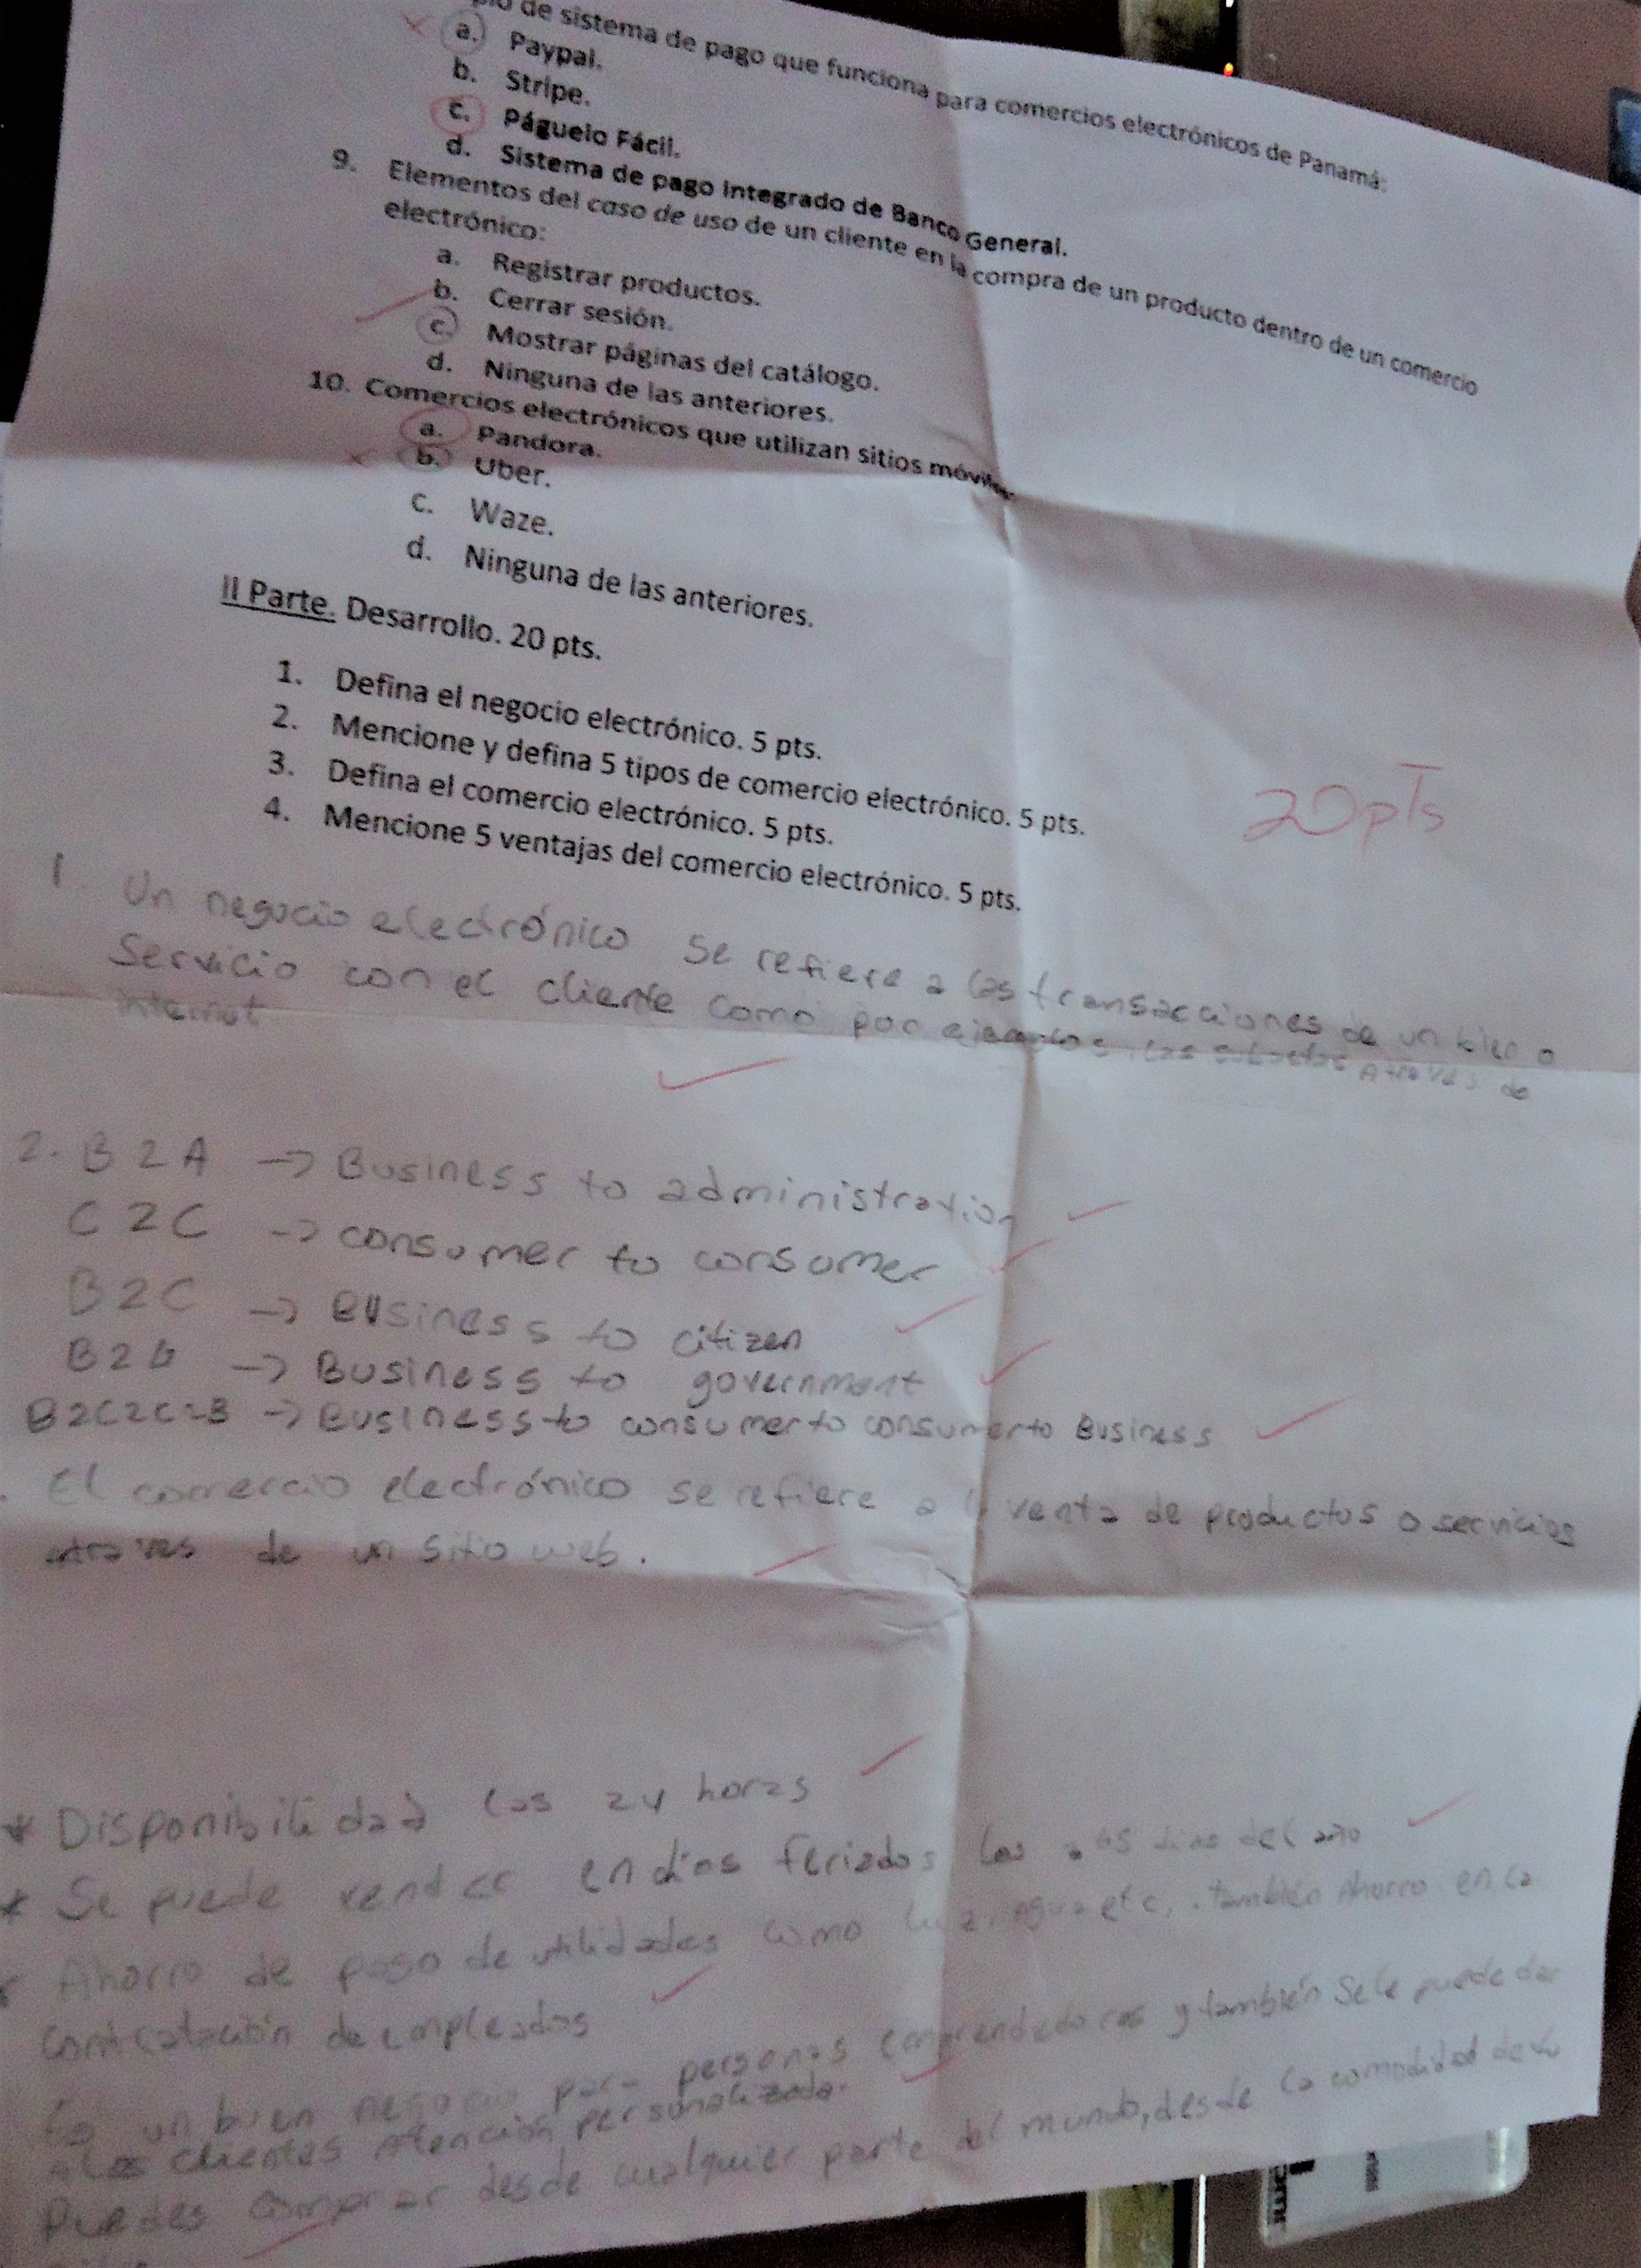 de sistema de pago que funciona para comercios electrónicos de Panamá:
a. Paypal.
b. Stripe.
c. Páguelo Fácil.
d. Sistema de pago integrado de Banco General.
9. Elementos del caso de uso de un cliente en la compra de un producto dentro de un comercio
electrónico:
a. Registrar productos.
b. Cerrar sesión.
c. Mostrar páginas del catálogo.
d. Ninguna de las anteriores.
10. Comercios electrónicos que utilizan sitios móviles:
a. Pandora.
b. Uber.
c. Waze.
d. Ninguna de las anteriores.
II Parte. Desarrollo. 20 pts.
1. Defina el negocio electrónico. 5 pts.
2. Mencione y defina 5 tipos de comercio electrónico. 5 pts.
3. Defina el comercio electrónico. 5 pts.
4. Mencione 5 ventajas del comercio electrónico. 5 pts.
20 pts
1. Un negocio electrónico se refiere a las transacciones de un bien o
Servicio con el cliente como por a traves de
internet
2. B2A → Business to administration
C2C → consumer to consumer
B2C → Business to citizen
B2G → Business to government
B2C2C2B → Business to consumer to consumer to Business
. El comercio electrónico se refiere a la venta de productos o servicios
atraves de un sitio web.
* Disponibilidad las 24 horas
* Se puede vender en dias feriados los 365 dias del año
* Ahorro de pago de utilidades como luz, agua etc, también Ahorro en la
contratación de empleados
Es un buen negocio para personas emprendedoras y también Se le puede dar
a los clientes atención personalizada.
Puedes comprar desde cualquier parte del mundo, desde la comodidad de tu